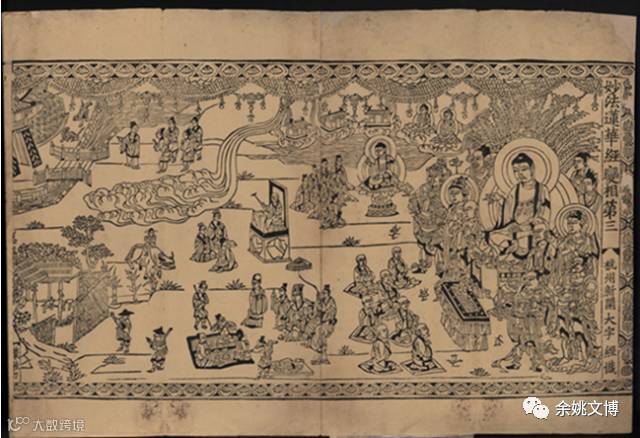 妙法蓮華經變相第三
杭州新開大字經儀
余姚文博
大数跨境